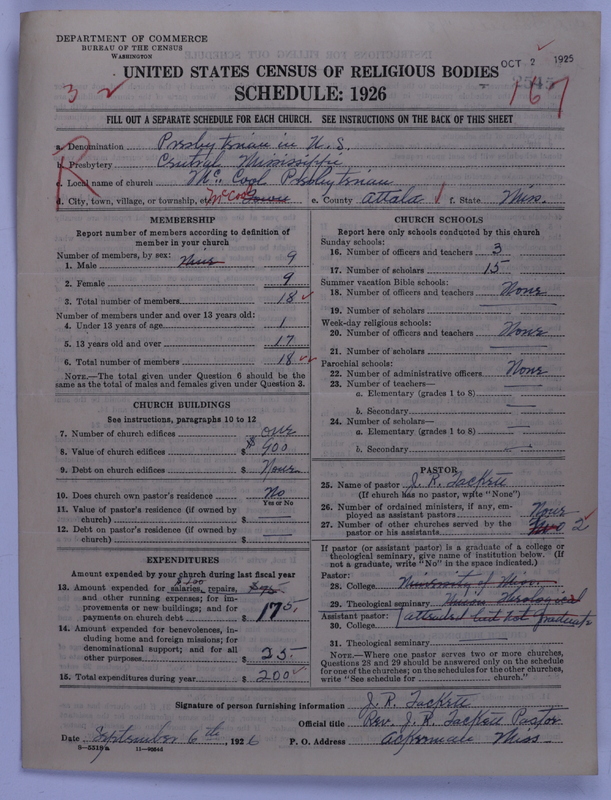 DEPARTMENT OF COMMERCE
BUREAU OF THE CENSUS
WASHINGTON
OCT 2 1925
UNITED STATES CENSUS OF RELIGIOUS BODIES
3 167
SCHEDULE: 1926
FILL OUT A SEPARATE SCHEDULE FOR EACH CHURCH. SEE INSTRUCTIONS ON THE BACK OF THIS SHEET
R
a. Denomination Presbyterian in U.S.
b. Presbytery Central Mississippi
c. Local name of church Mc. Cool Presbyterian
d. City, town, village, or township, etc. McCool e. County Attala f. State Miss.
MEMBERSHIP
Report number of members according to definition of
member in your church
Number of members, by sex:
1. Male Nine 9
2. Female 9
3. Total number of members 18
Number of members under and over 13 years old:
4. Under 13 years of age 1
5. 13 years old and over 17
6. Total number of members 18
NOTE.—The total given under Question 6 should be
same as the total of males and females given under Question 3.
CHURCH BUILDINGS
See instructions, paragraphs 10 to 12
7. Number of church edifices one
8. Value of church edifices $ $900
9. Debt on church edifices $ None
10. Does church own pastor's residence No
Yes or No
11. Value of pastor's residence (if owned by
church) $
12. Debt on pastor's residence (if owned by
church) $
EXPENDITURES
Amount expended by your church during last fiscal year
13. Amount expended for salaries, repairs,
and other running expenses; for im-
provements or new buildings; and for
payments on church debt $ 175.
14. Amount expended for benevolences, in-
cluding home and foreign missions; for
denominational support; and for all
other purposes $ 25
15. Total expenditures during year $ 200
CHURCH SCHOOLS
Report here only schools conducted by this church
Sunday schools:
16. Number of officers and teachers 3
17. Number of scholars 15
Summer vacation Bible schools:
18. Number of officers and teachers None
19. Number of scholars
Week-day religious schools:
20. Number of officers and teachers None
21. Number of scholars
Parochial schools:
22. Number of administrative officers None
23. Number of teachers—
a. Elementary (grades 1 to 8)
b. Secondary
24. Number of scholars—
a. Elementary (grades 1 to 8)
b. Secondary
PASTOR
25. Name of pastor J. R. Tackett
(If church has no pastor, write "None")
26. Number of ordained ministers, if any, em-
ployed as assistant pastors None
27. Number of other churches served by the
pastor or his assistants Two 2
If pastor (or assistant pastor) is a graduate of a college or
theological seminary, give name of institution below. (If
not a graduate, write "No" in the space indicated.)
Pastor:
28. College University of Miss.
29. Theological seminary Union Theological
Assistant pastor: (attended but not graduate
30. College
31. Theological seminary
NOTE.—Where one pastor serves two or more churches,
Questions 28 and 29 should be answered only on the schedule
for one of the churches; on the schedules for the other churches,
write "See schedule for church."
Signature of person furnishing information J. R. Tackett
Official title Rev. J. R. Tackett Pastor
Date September 6th, 1926 P. O. Address Ackerman Miss.